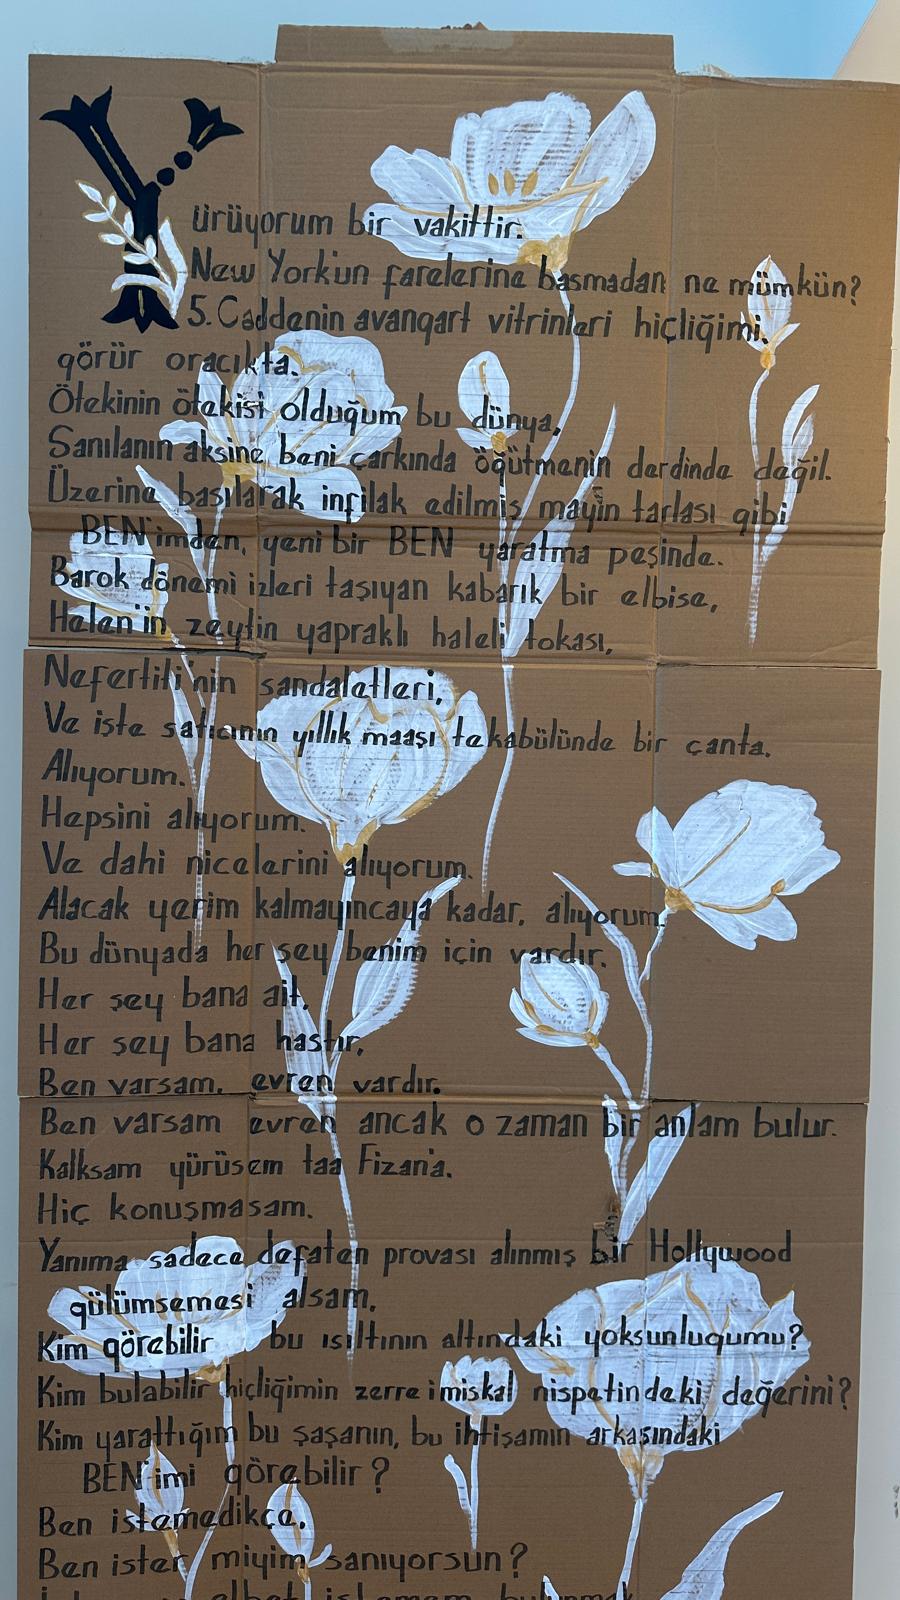 Yürüyorum bir vakittir.
New York'un farelerine basmadan ne mümkün?
5. Caddenin avangart vitrinleri hiçliğimi,
görür oracıkta.
Ötekinin ötekisi olduğum bu dünya,
Sanılanın aksine beni çarkında öğütmenin derdinde değil.
Üzerine basılarak infilak edilmiş mayın tarlası gibi
BEN'imden, yeni bir BEN yaratma peşinde.
Barok dönemi izleri taşıyan kabarık bir elbise,
Helen'in zeytin yapraklı haleli tokası,
Nefertiti'nin sandaletleri,
Ve işte satıcının yıllık maaşı tekabülünde bir çanta.
Alıyorum.
Hepsini alıyorum.
Ve dahi nicelerini alıyorum.
Alacak yerim kalmayıncaya kadar, alıyorum.
Bu dünyada her şey benim için vardır.
Her şey bana ait,
Her şey bana hastır,
Ben varsam, evren vardır.
Ben varsam evren ancak o zaman bir anlam bulur.
Kalksam yürüsem taa Fizan'a.
Hiç konuşmasam.
Yanıma sadece defaten provası alınmış bir Hollywood
gülümsemesi alsam,
Kim görebilir bu ışıltının altındaki yoksunluğumu?
Kim bulabilir hiçliğimin zerre i miskal nispetindeki değerini?
Kim yarattığım bu şaşanın, bu ihtişamın arkasındaki
BEN'imi görebilir?
Ben istemedikçe,
Ben ister miyim sanıyorsun?
elbet istemem bulunmak